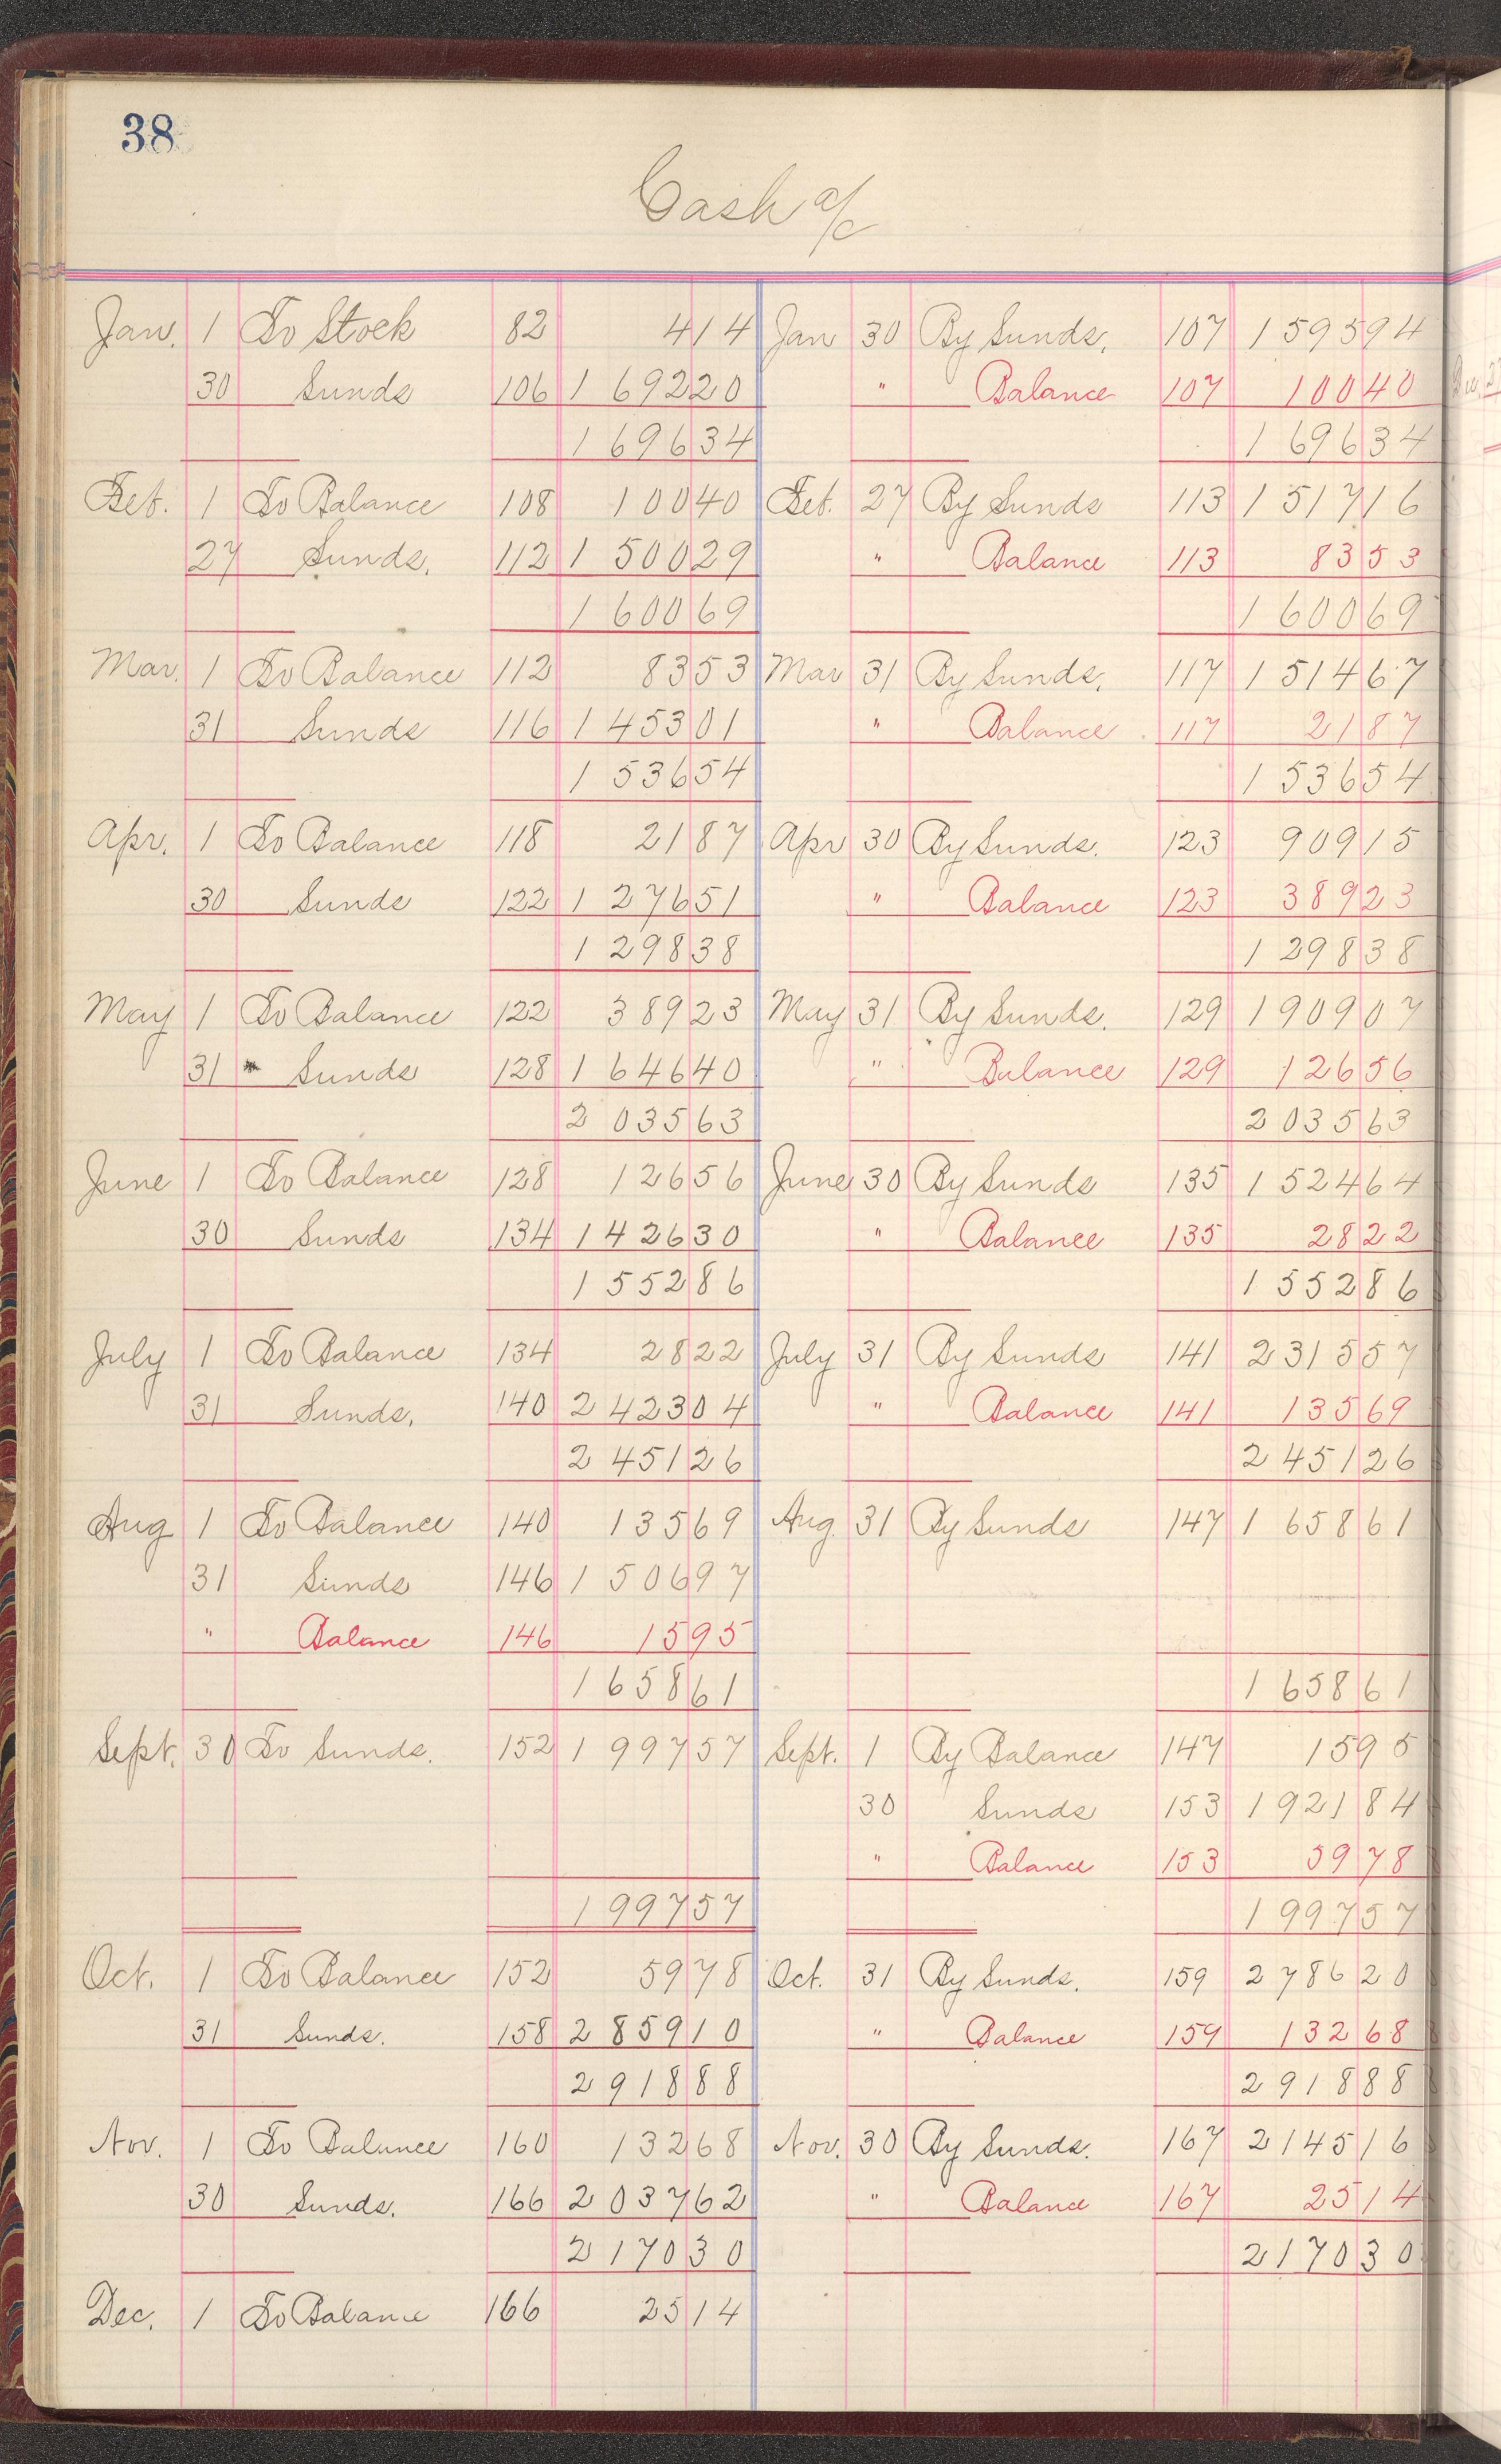 38
Cash a/c
Jan. 1 To Stock 82 4 14 Jan 30 By Sunds. 107 1 595 94
30 Sunds 106 1 692 20 " Balance 107 100 40
1 696 34 1 696 34
Feb. 1 To Balance 108 100 40 Feb. 27 By Sunds 113 1 517 16
27 Sunds. 112 1 500 29 " Balance 113 83 53
1 600 69 1 600 69
Mar. 1 To Balance 112 83 53 Mar 31 By Sunds. 117 1 514 67
31 Sunds 116 1 453 01 " Balance 117 21 87
1 536 54 1 536 54
Apr. 1 To Balance 118 21 87 Apr 30 By Sunds. 123 909 15
30 Sunds 122 1 276 51 " Balance 123 389 23
1 298 38 1 298 38
May 1 To Balance 122 389 23 May 31 By Sunds. 129 1 909 07
31 Sunds 128 1 646 40 " Balance 129 126 56
2 035 63 2 035 63
June 1 To Balance 128 126 56 June 30 By Sunds 135 1 524 64
30 Sunds 134 1 426 30 " Balance 135 28 22
1 552 86 1 552 86
July 1 To Balance 134 28 22 July 31 By Sunds 141 2 315 57
31 Sunds. 140 2 423 04 " Balance 141 135 69
2 451 26 2 451 26
Aug 1 To Balance 140 135 69 Aug. 31 By Sunds 147 1 658 61
31 Sunds 146 1 506 97
" Balance 146 15 95
1 658 61 1 658 61
Sept. 30 To Sunds. 152 1 997 57 Sept. 1 By Balance 147 15 95
30 Sunds 153 1 921 84
" Balance 153 59 78
1 997 57 1 997 57
Oct. 1 To Balance 152 59 78 Oct. 31 By Sunds. 159 2 786 20
31 Sunds. 158 2 859 10 " Balance 159 132 68
2 918 88 2 918 88
Nov. 1 To Balance 160 132 68 Nov. 30 By Sunds. 167 2 145 16
30 Sunds. 166 2 037 62 " Balance 167 25 14
2 170 30 2 170 30
Dec. 1 To Balance 166 25 14